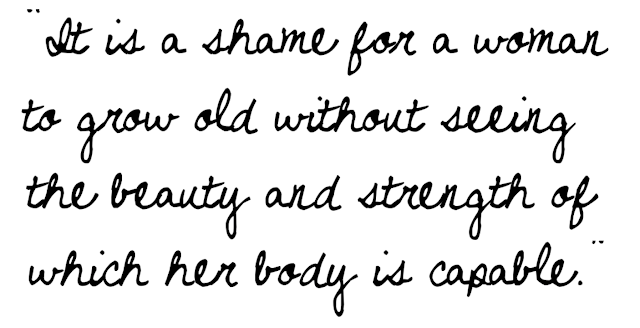 "It is a shame for a woman
to grow old without seeing
the beauty and strength of
which her body is capable."